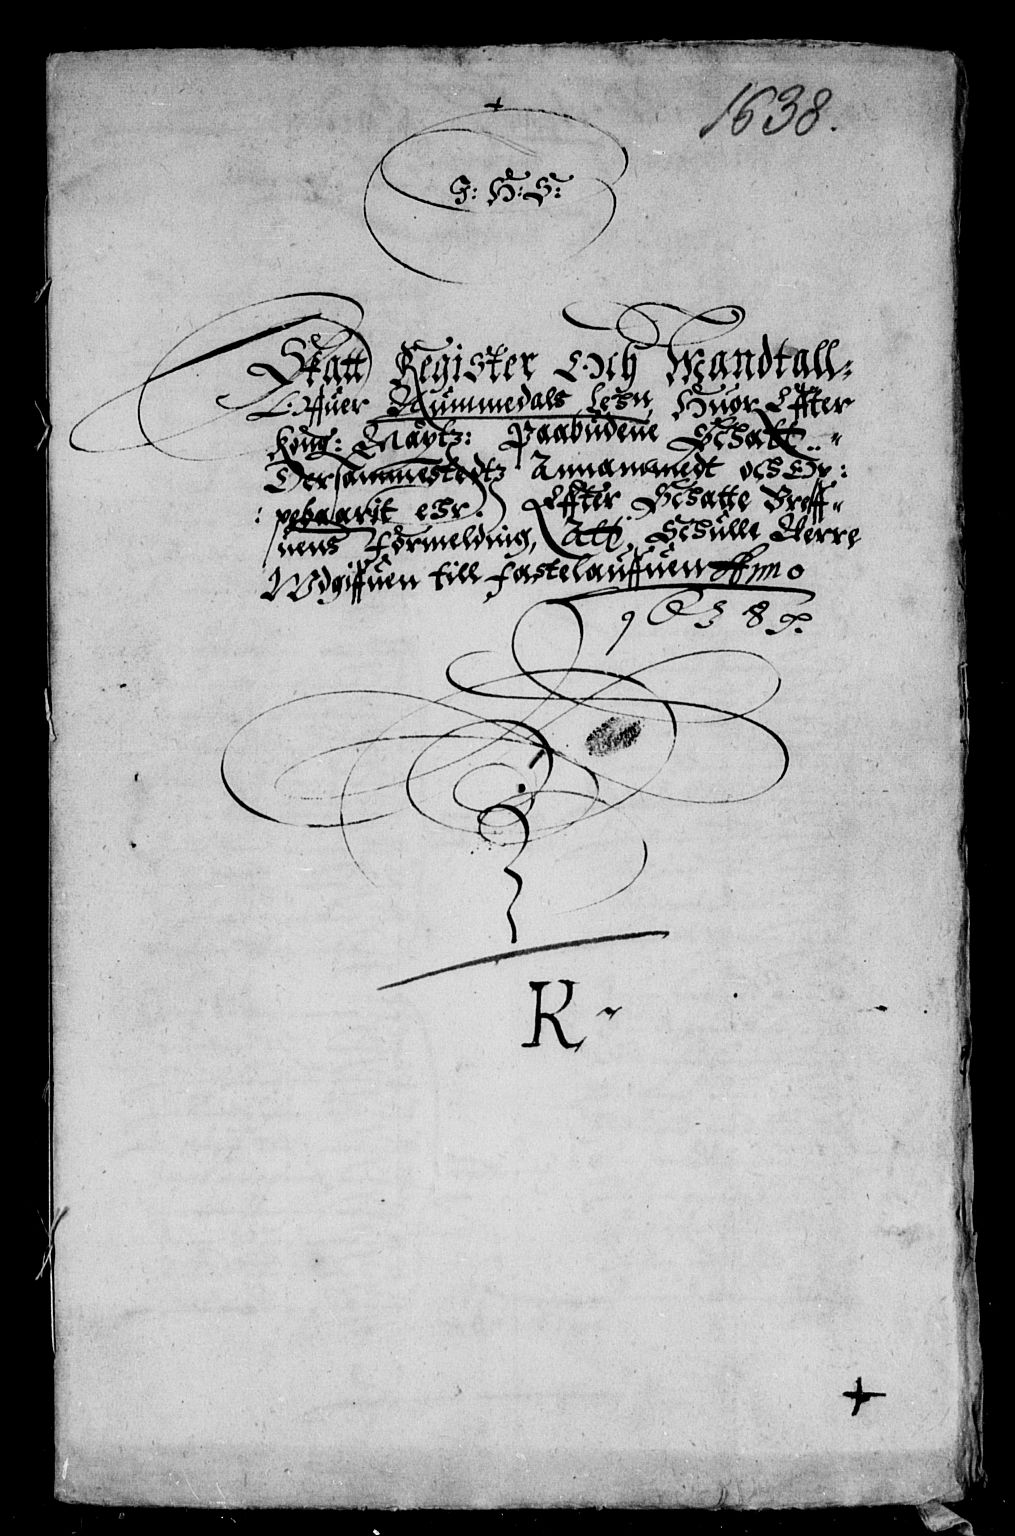 1638.
J: H: S:
Skatt Register Och Mandtall,
Offuer Nummedals Lehn, Huor Effter
Kong: Maytz: Paabudene Schatt
Dersammestedtz Annammedt och Op:
:pebaarit ehr. Effter Schatte Breff„
uens Formelding, Att Schulle Verre
Wdgiffuen till Fastelauffuen Anno
1638
K